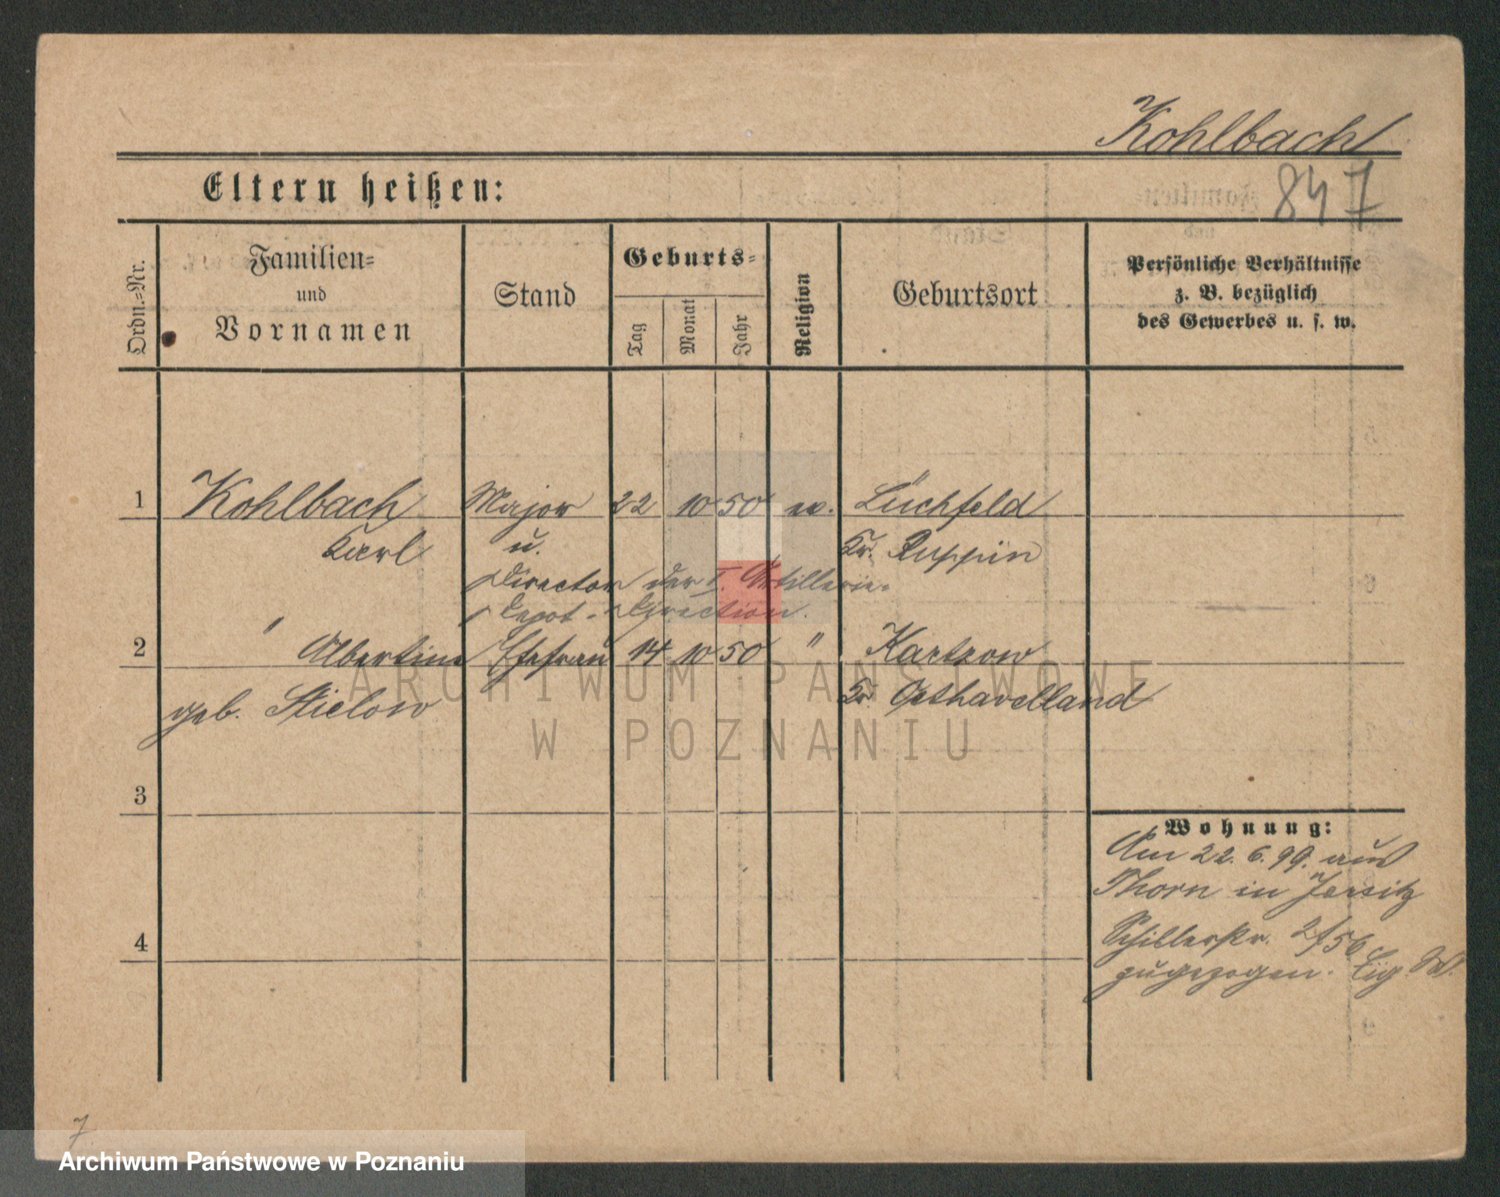 Kohlbach
Eltern heißen:
847
Ordn.-Nr.
Familien-
und
Vornamen
Stand
Geburts-
Tag
Monat
Jahr
Religion
Geburtsort
Persönliche Verhältnisse
z. B. bezüglich
des Gewerbes u. s. w.
1 Kohlbach Major 22 10 50 ev. Lüchfeld
Karl u. Kr. Ruppin
Director der I. Artillerie-
Depot-Direction.
2 " Albertine Ehefrau 14 10 50 " Kartzow
geb. Stielow Kr. Osthavelland
3
4
Wohnung:
Am 22. 6. 99. aus
Thorn in Jersitz
Schillerstr. 2/56
zugezogen. Eig. W.
7
ARCHIWUM PAŃSTWOWE
W POZNANIU
Archiwum Państwowe w Poznaniu